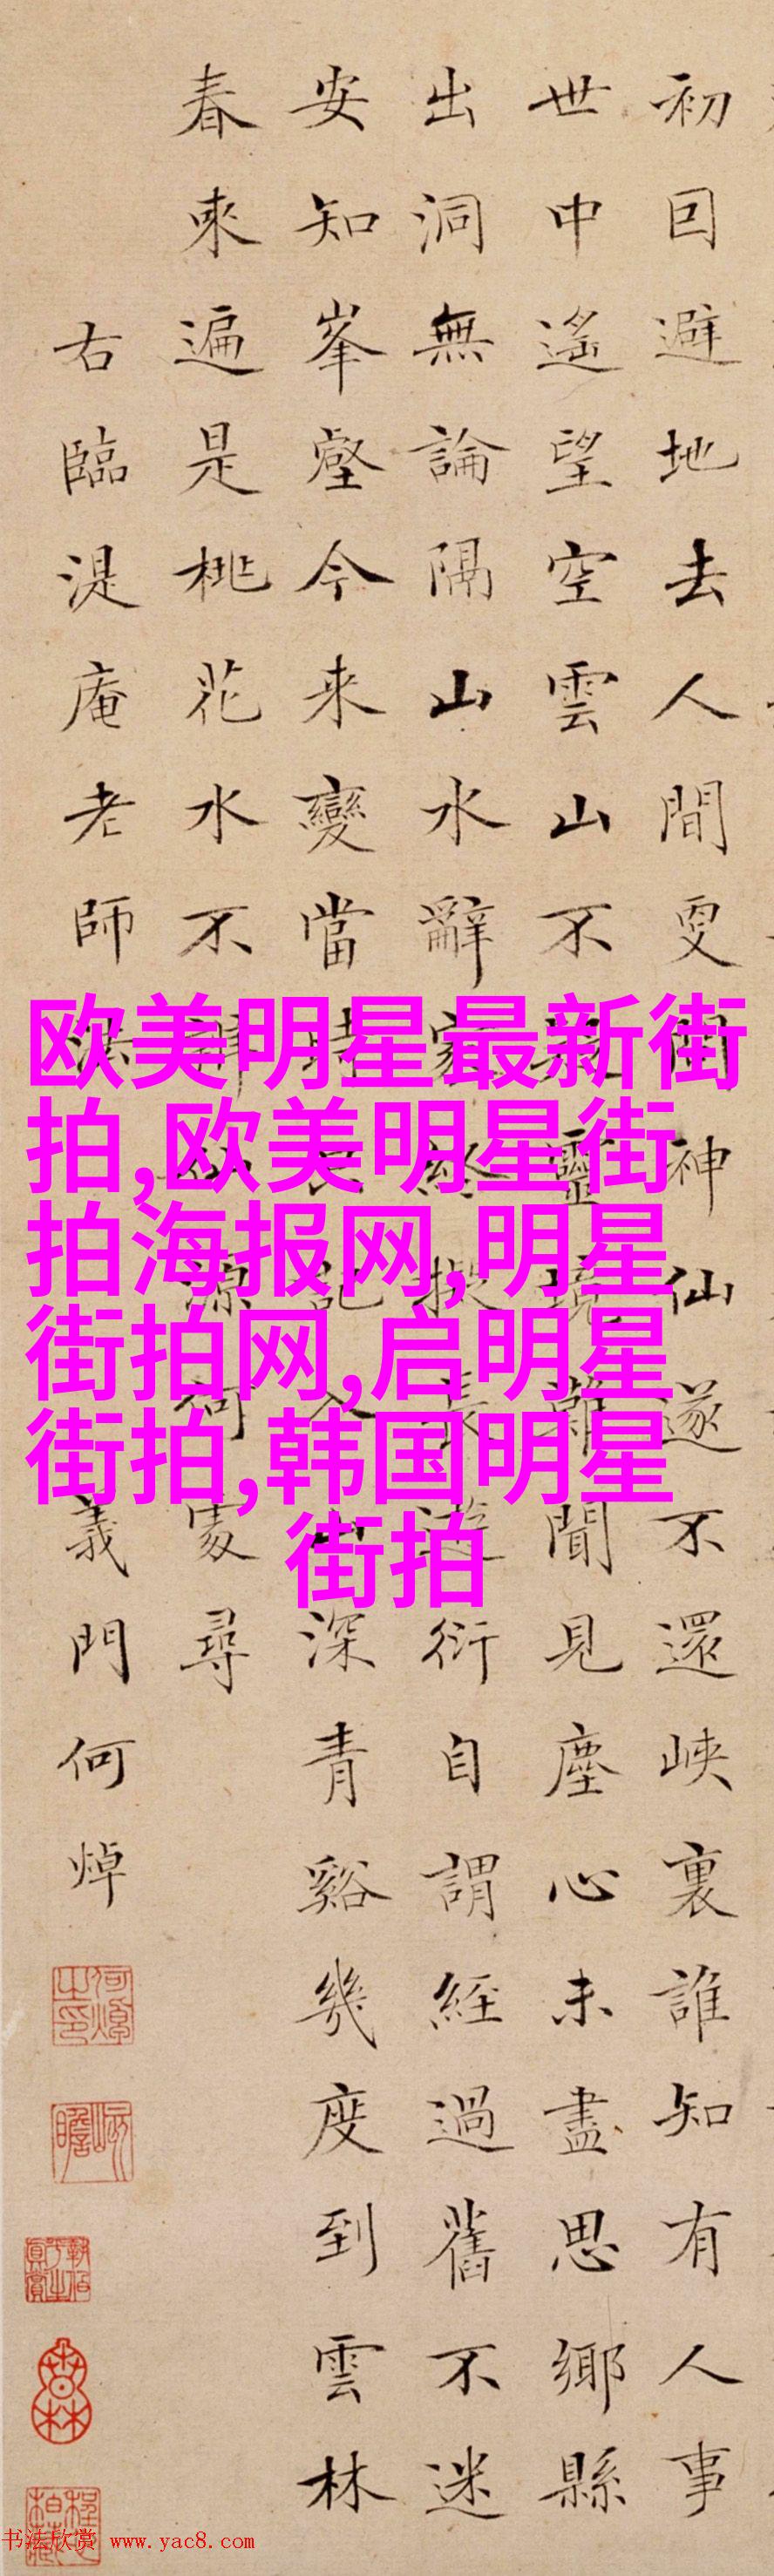 初回避地去人間更聞神仙遂不還峽裏誰知有人事
世中遙望空雲山不疑靈境難聞見塵心未盡思鄉縣
出洞無論隔山水辭家終擬長遊衍自謂經過舊不迷
安知峯壑今来變當時只記入山深青谿幾度到雲林
春來遍是桃花水不辨仙源何處尋
右臨湜庵老師
義門何焯
欧美明星最新街
拍,欧美明星街
拍海报网,明星
街拍网,启明星
街拍,韩国明星
街拍
书法欣赏 www.yac8.com